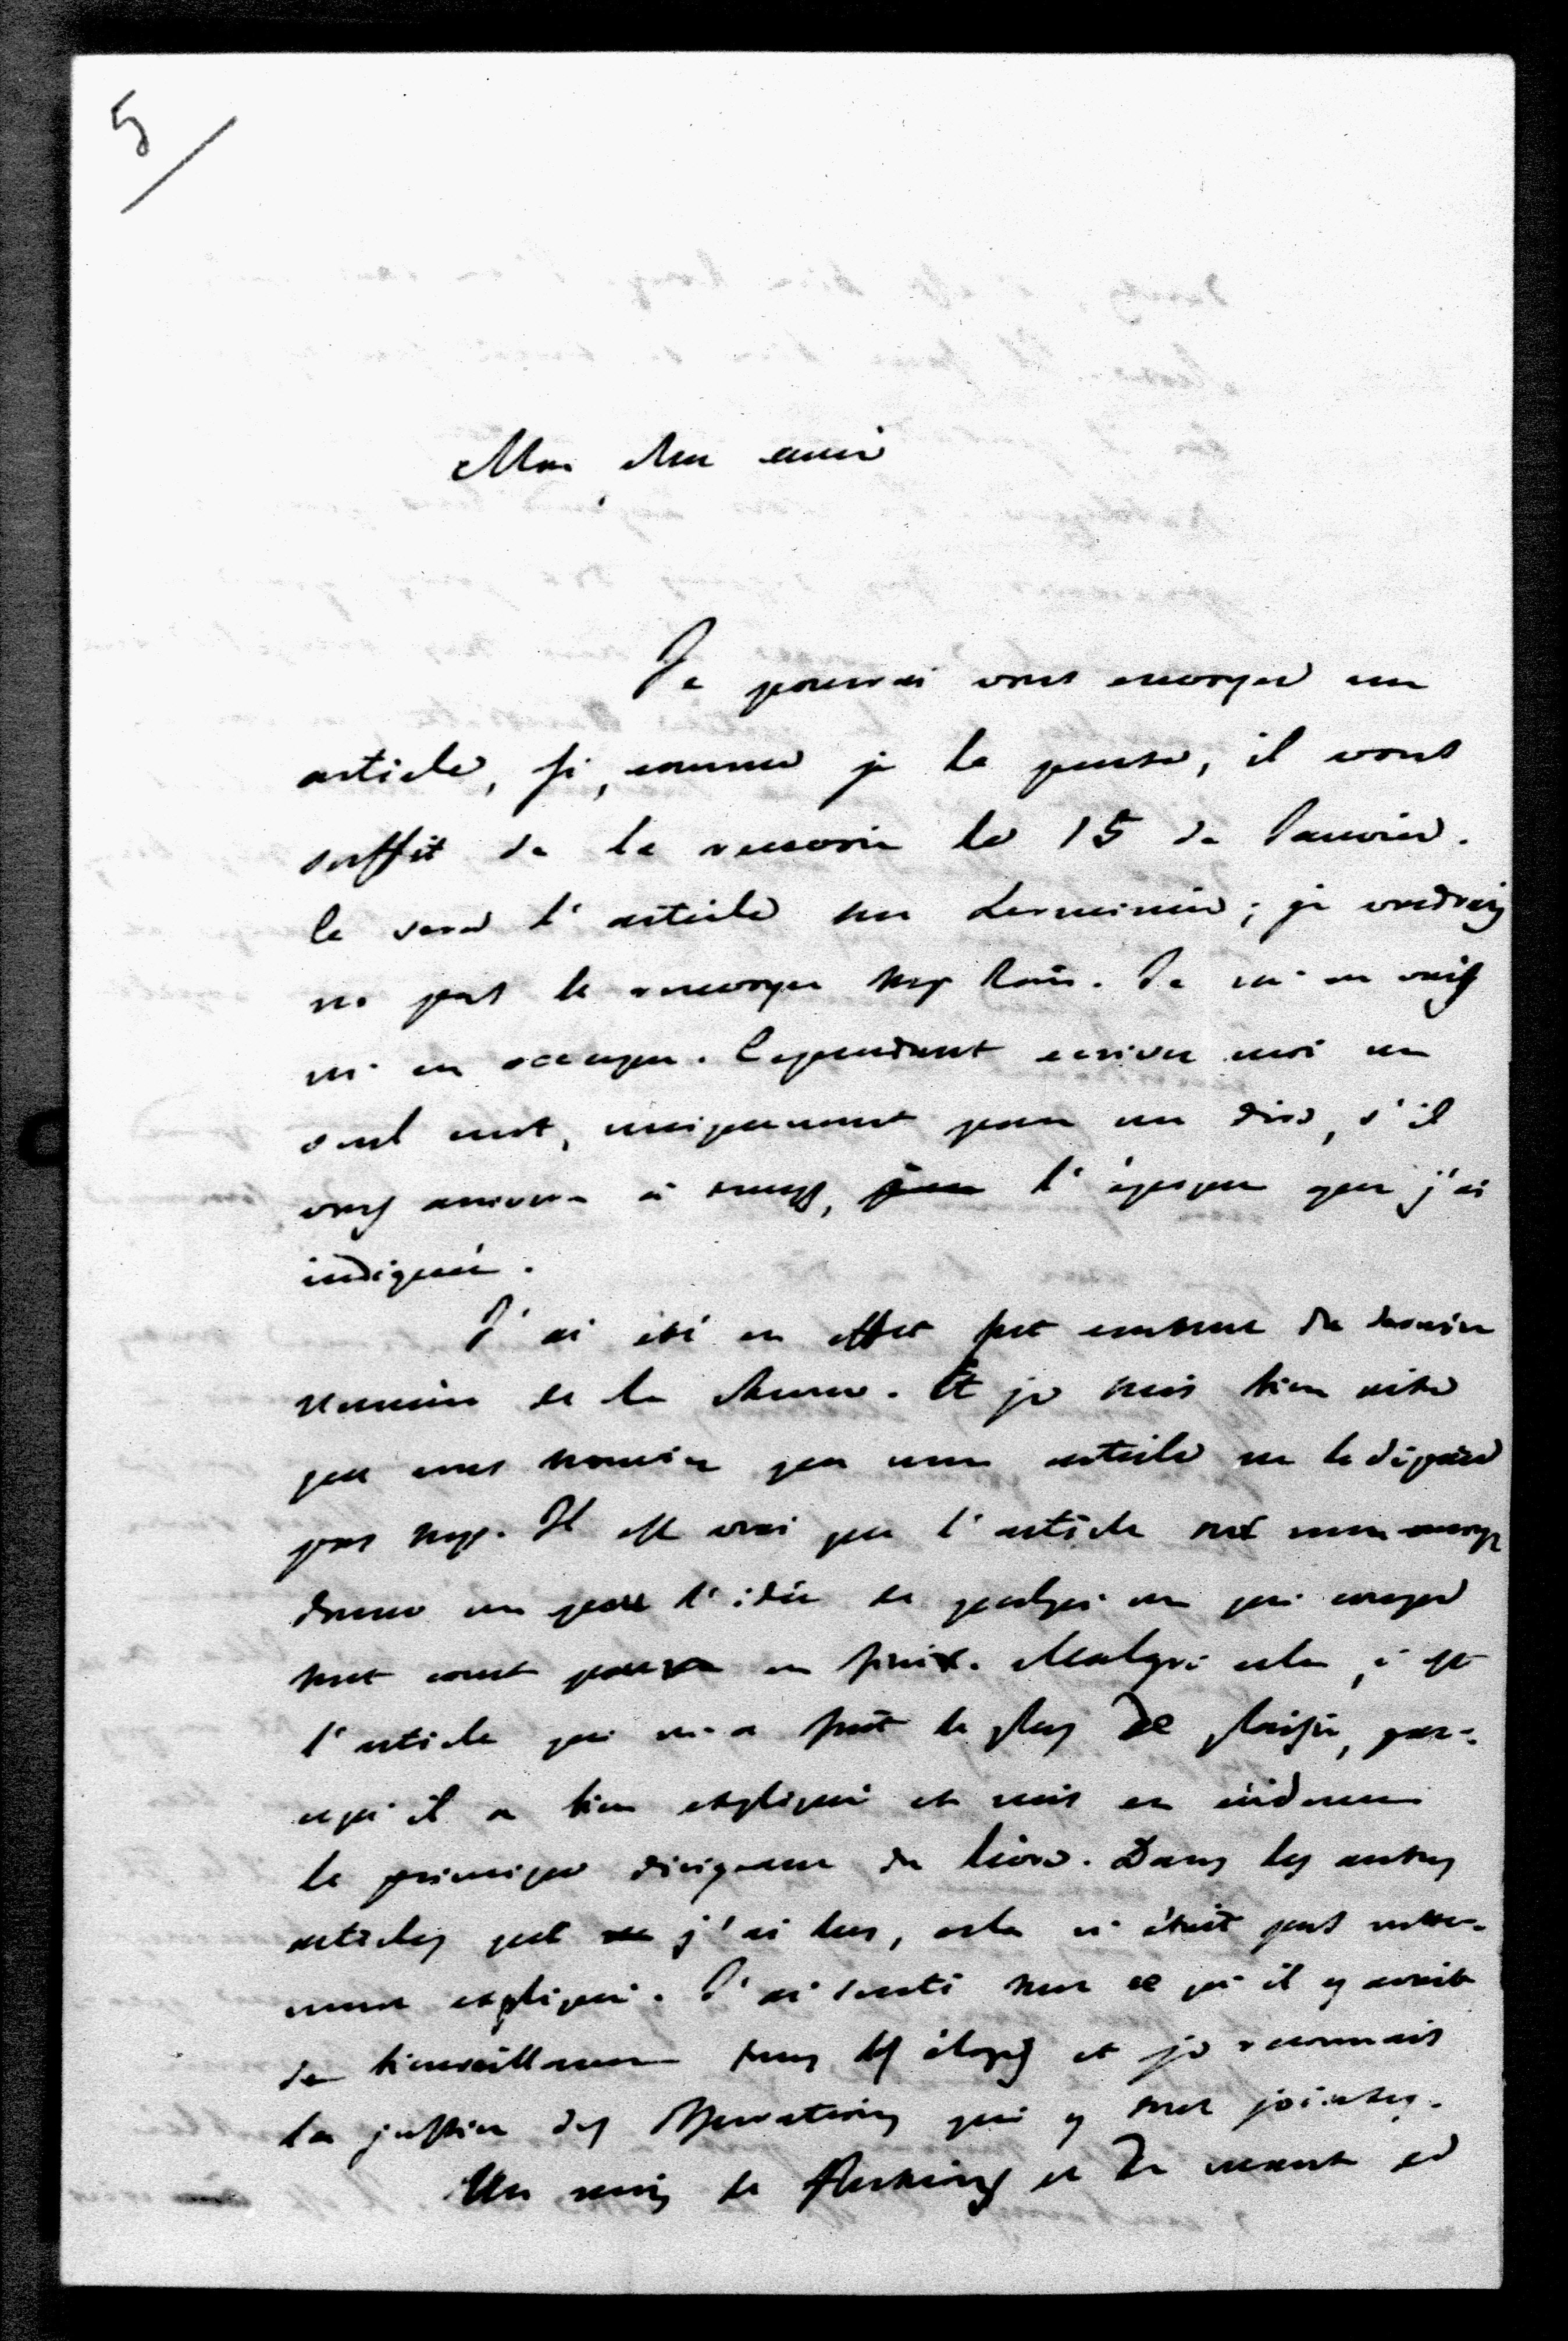 5
Mon cher ami
Je pourrai vous envoyer un
article, si, comme je le pense, il vous
suffit de le recevoir le 15 de Janvier.
Ce sera l'article sur Lerminier; je voudrais
ne pas le renvoyer trop loin. Je m'en vais
m'en occuper. Cependant écrivez moi un
seul mot, uniquement pour me dire, s'il
vous arrivera à temps, l'époque que j'ai
indiquée.
J'ai été en effet fort content du dernier
numéro de la Revue. Et je suis bien aise
que vous trouviez que mon article ne le dépare
pas trop. Il est vrai que l'article sur mon ouvrage
donne un peu l'idée de quelqu'un qui
tout court en finir. Malgré cela, c'est
l'article qui m'a fait le plus de plaisir, par-
cequ'il a bien expliqué et mis en évidence
le principe dirigeant du livre. Dans les autres
articles que j'ai lus, cela n'était pas nette-
ment expliqué. J'ai senti tout ce qu'il y avait
de bienveillance dans les éloges et je reconnais
la justice des observations qui y sont jointes.
Un mois de et de